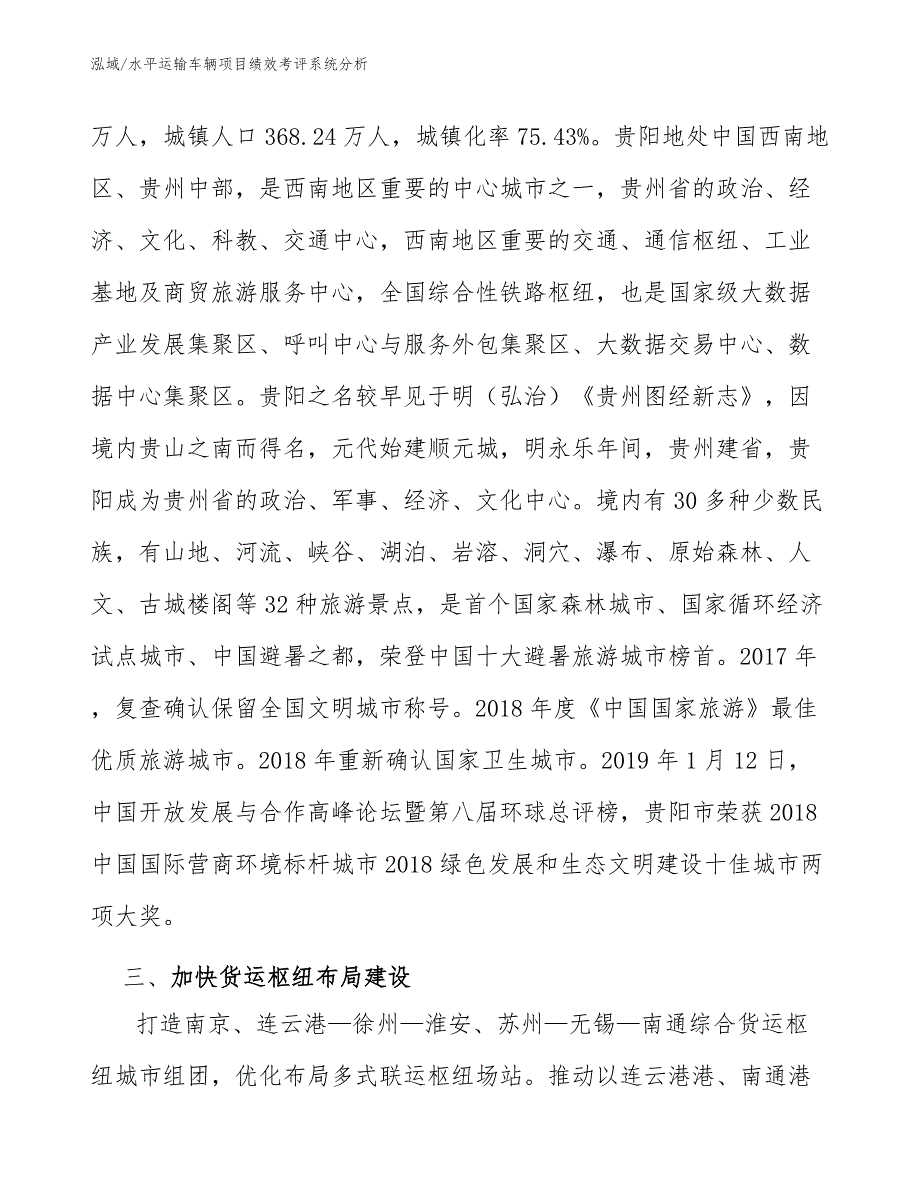 泓域/水平运输车辆项目绩效考评系统分析
万人，城镇人口 368.24 万人，城镇化率 75.43%。贵阳地处中国西南地
区、贵州中部，是西南地区重要的中心城市之一，贵州省的政治、经
济、文化、科教、交通中心，西南地区重要的交通、通信枢纽、工业
基地及商贸旅游服务中心，全国综合性铁路枢纽，也是国家级大数据
产业发展集聚区、呼叫中心与服务外包集聚区、大数据交易中心、数
据中心集聚区。贵阳之名较早见于明（弘治）《贵州图经新志》，因
境内贵山之南而得名，元代始建顺元城，明永乐年间，贵州建省，贵
阳成为贵州省的政治、军事、经济、文化中心。境内有 30 多种少数民
族，有山地、河流、峡谷、湖泊、岩溶、洞穴、瀑布、原始森林、人
文、古城楼阁等 32 种旅游景点，是首个国家森林城市、国家循环经济
试点城市、中国避暑之都，荣登中国十大避暑旅游城市榜首。2017 年
，复查确认保留全国文明城市称号。2018 年度《中国国家旅游》最佳
优质旅游城市。2018 年重新确认国家卫生城市。2019 年 1 月 12 日，
中国开放发展与合作高峰论坛暨第八届环球总评榜，贵阳市荣获 2018
中国国际营商环境标杆城市 2018 绿色发展和生态文明建设十佳城市两
项大奖。
三、加快货运枢纽布局建设
打造南京、连云港—徐州—淮安、苏州—无锡—南通综合货运枢
纽城市组团，优化布局多式联运枢纽场站。推动以连云港港、南通港